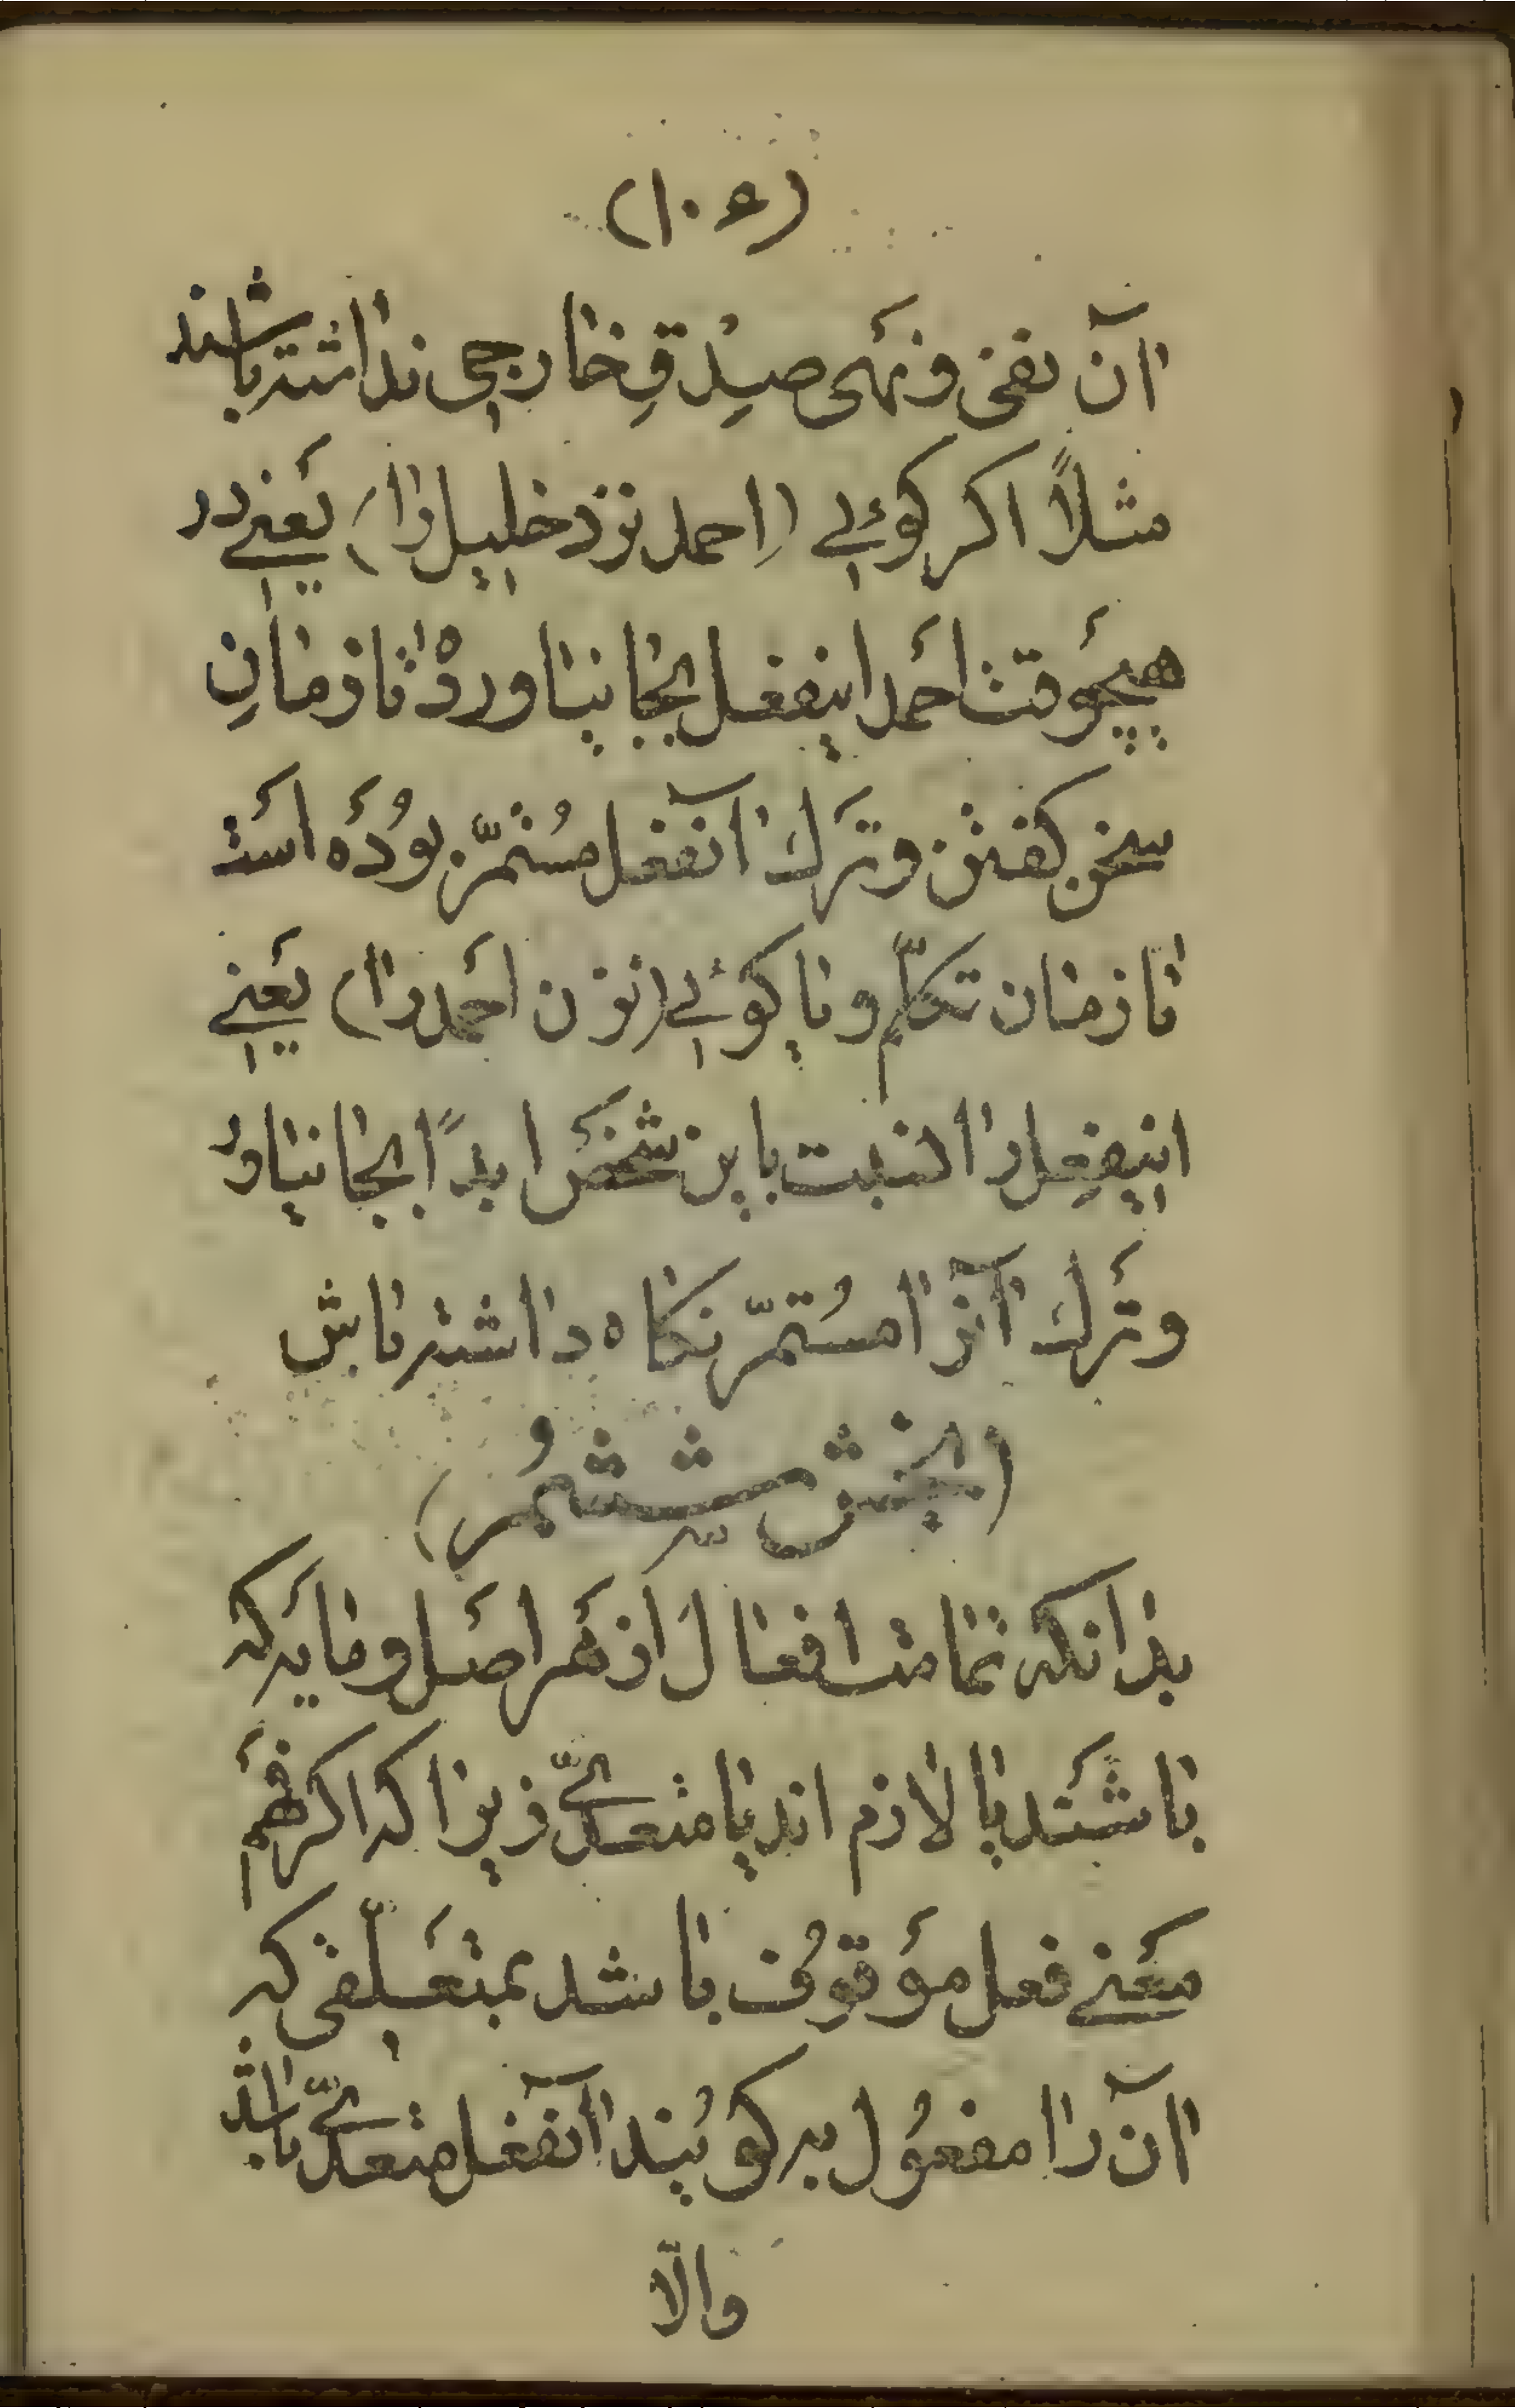 (۱۰۵)
آن نفی و نهی صِدْقِ خارجی نداشته باشند
مثلاً اکر کوئی (احمد نزد خلیل را) یَعنی در
هیچوقت اَحمد اینفعل بجا نیاورد تا زمانِ
سخن کفتن و ترَك آنفعل مُستمرّ بوُدَه اَست
تا زمان تکلّم و یا کوئی (نزن اَحمد را) یَعنی
اینفِعل را نسبت باین شخَص ابدًا بجا نیاور
و ترَك آنرا مسُتمرّ نکاه داشته باش
(بخش ششمُ)
بدانکه تمامت افعال از هَر اصَل و مایَه که
باشَند یا لازم اند یا متعدّی زیرا که اکر فهَم
مَعنی فعل مؤَقوُف باشد بمتعَلّقی که
آن را مفعوُل به کویُند آنفعل متعدّی باشد
والّا